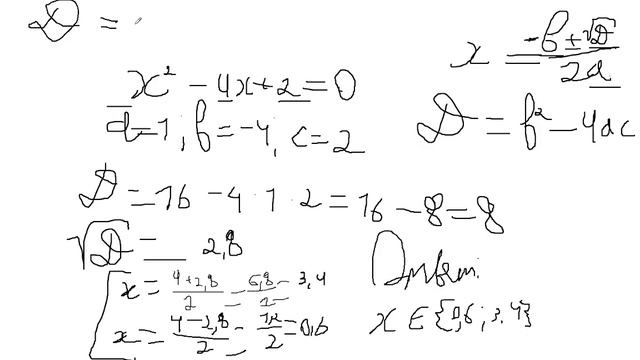 D =
x = (-b ± √D) / 2a
x² - 4x + 2 = 0
a = 1 ; b = -4, c = 2
D = b² - 4ac
D = 16 - 4 · 1 · 2 = 16 - 8 = 8
√D = 2,8
x = (4 + 2,8) / 2 = 6,8 / 2 = 3,4
Ответ:
x = (4 - 2,8) / 2 = 1,2 / 2 = 0,6
x ∈ {0,6 ; 3,4}